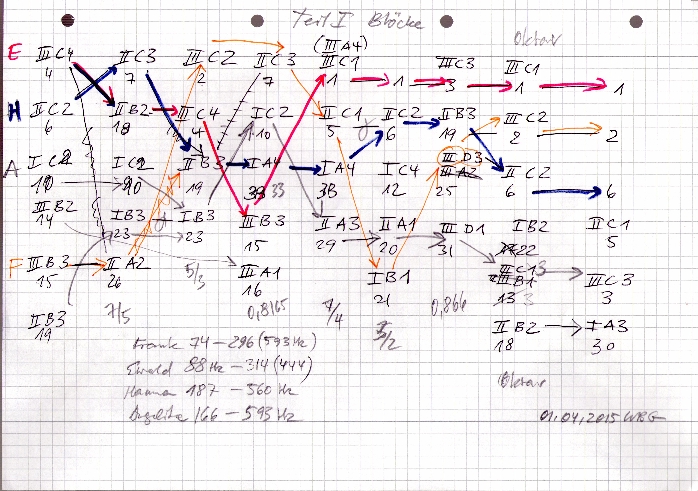 Teil I Blöcke
(III A4)
Oktav
E III C4 II C3 III C2 II C3 III C1 III C3 III C1
4 7 2 7 1 1 3 1 1
H II C2 II B2 III C4 I C2 II C1 II C2 II B3 III C2
6 18 4 10 5 6 19 2 2
A I C2 I C2 II B3 I A4 I A4 I C4 III D3 II C2
10 10 19 33 33 12 25 6 6
III B2 I B3 I B3 III B3 II A3 II A1 III D1 I B2 II C1
14 23 23 15 29 20 31 22 5
F III B3 II A2 III A1 I B1 III C3
15 26 5/3 16 21 13 3 3
II B3 7/5 0,8165 7/4 3/2 0,866 II B2 I A3
19 18 30
Frank 74 – 296 (593 Hz)
Ewald 88 Hz – 314 (444)
Hanna 187 – 560 Hz
Angelika 166 – 593 Hz
Oktav
01.04.2015 WBG